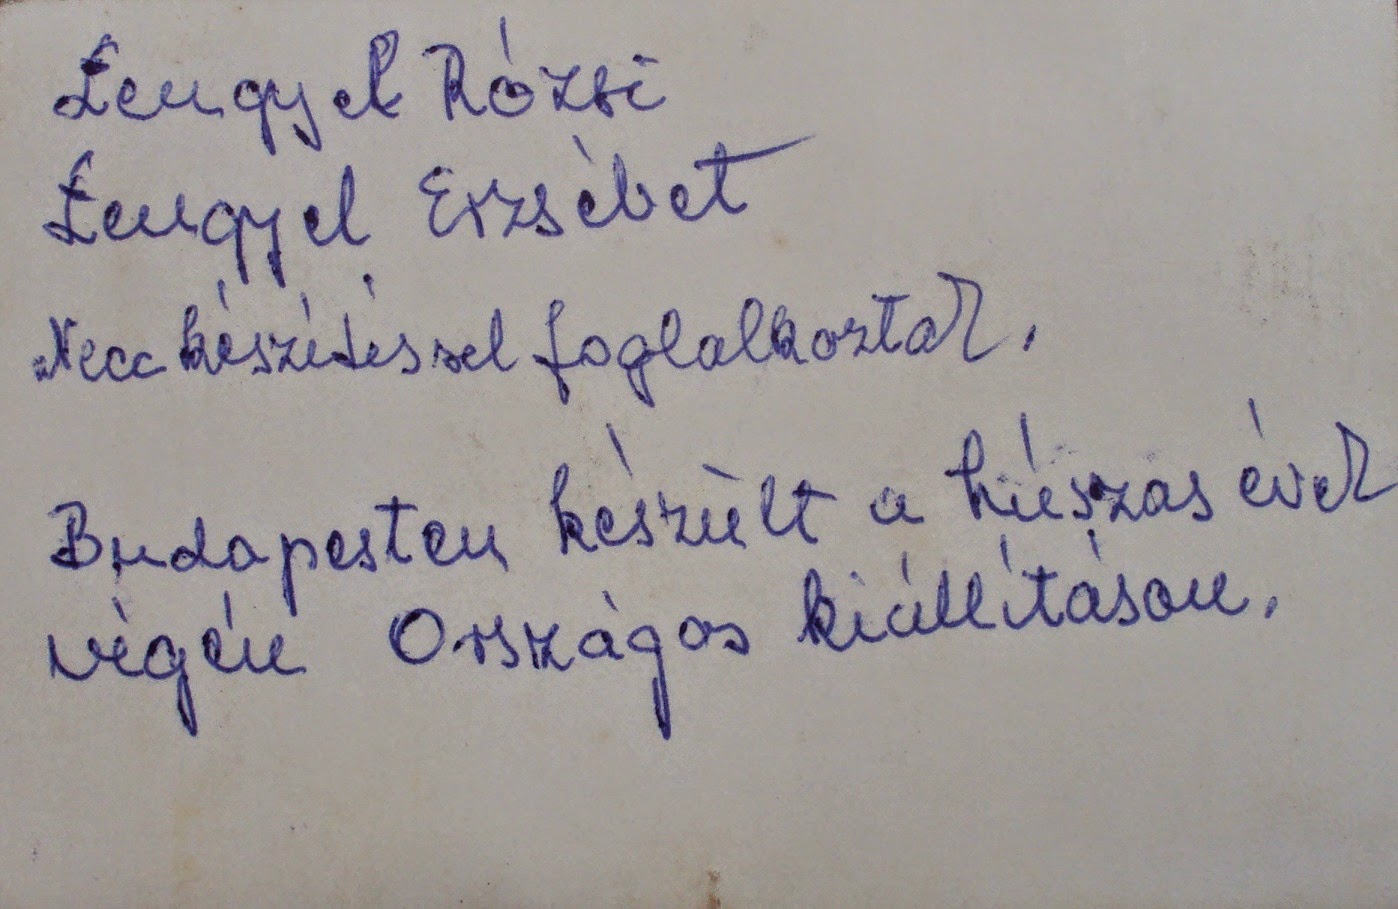 Lengyel Rózsi
Lengyel Erzsébet
Necc készítéssel foglalkoztak.
Budapesten készült a húszas évek
végén Országos kiállításon.